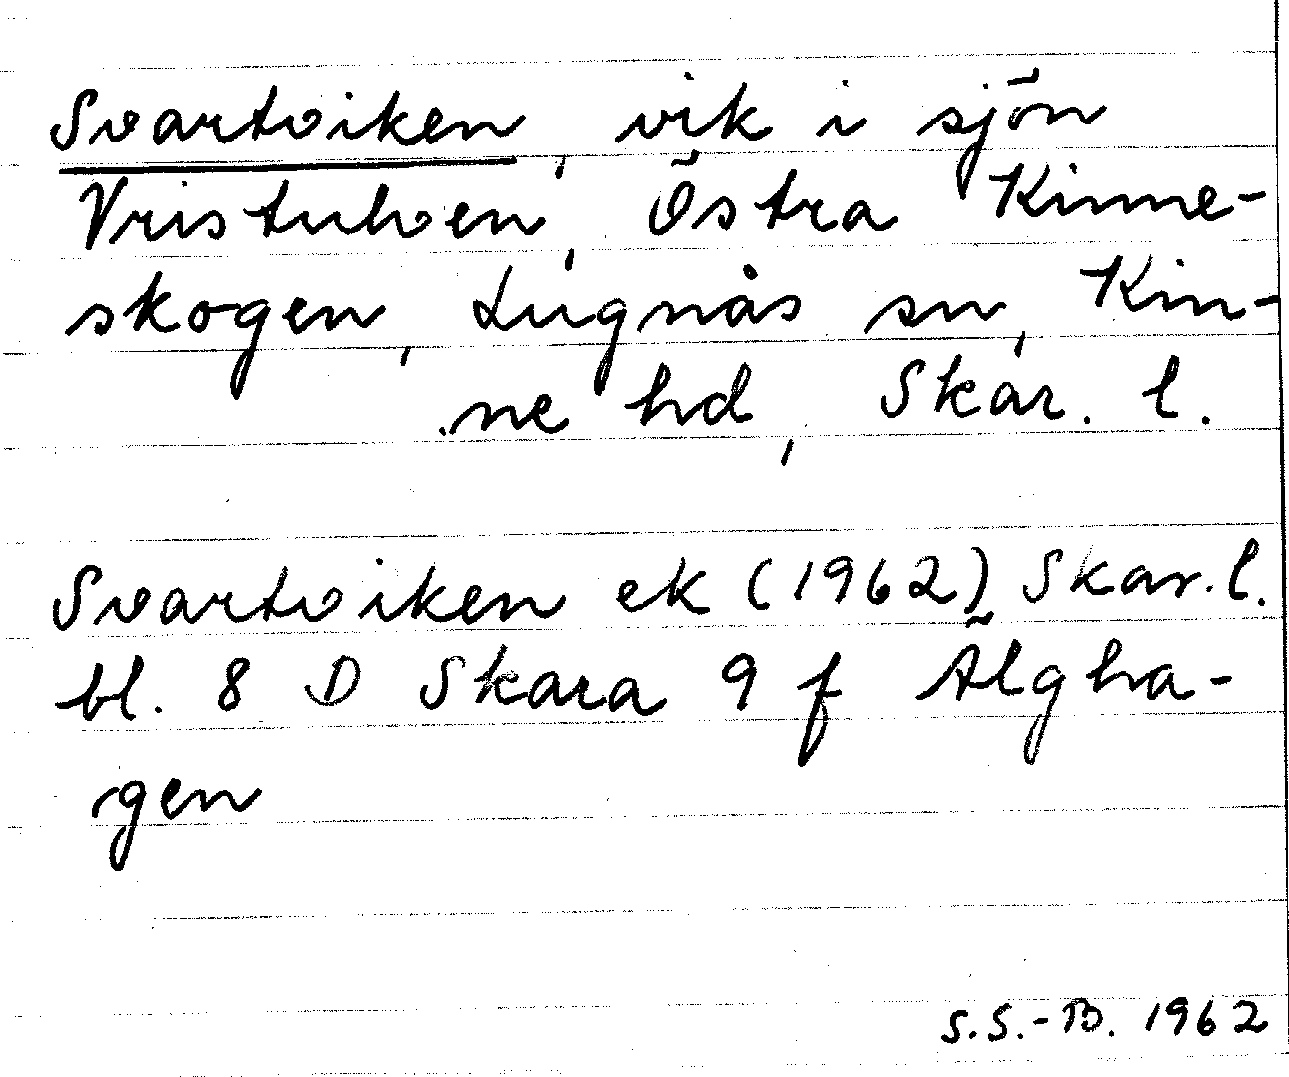 Svartviken, vik i sjön
Vristulven, Östra Kinne-
skogen, Lugnås sn, Kin-
ne hd, Skar. l.
Svartviken ek (1962) Skar. l.
bl. 8 D Skara 9 f Älgha-
gen
S.S.-B. 1962